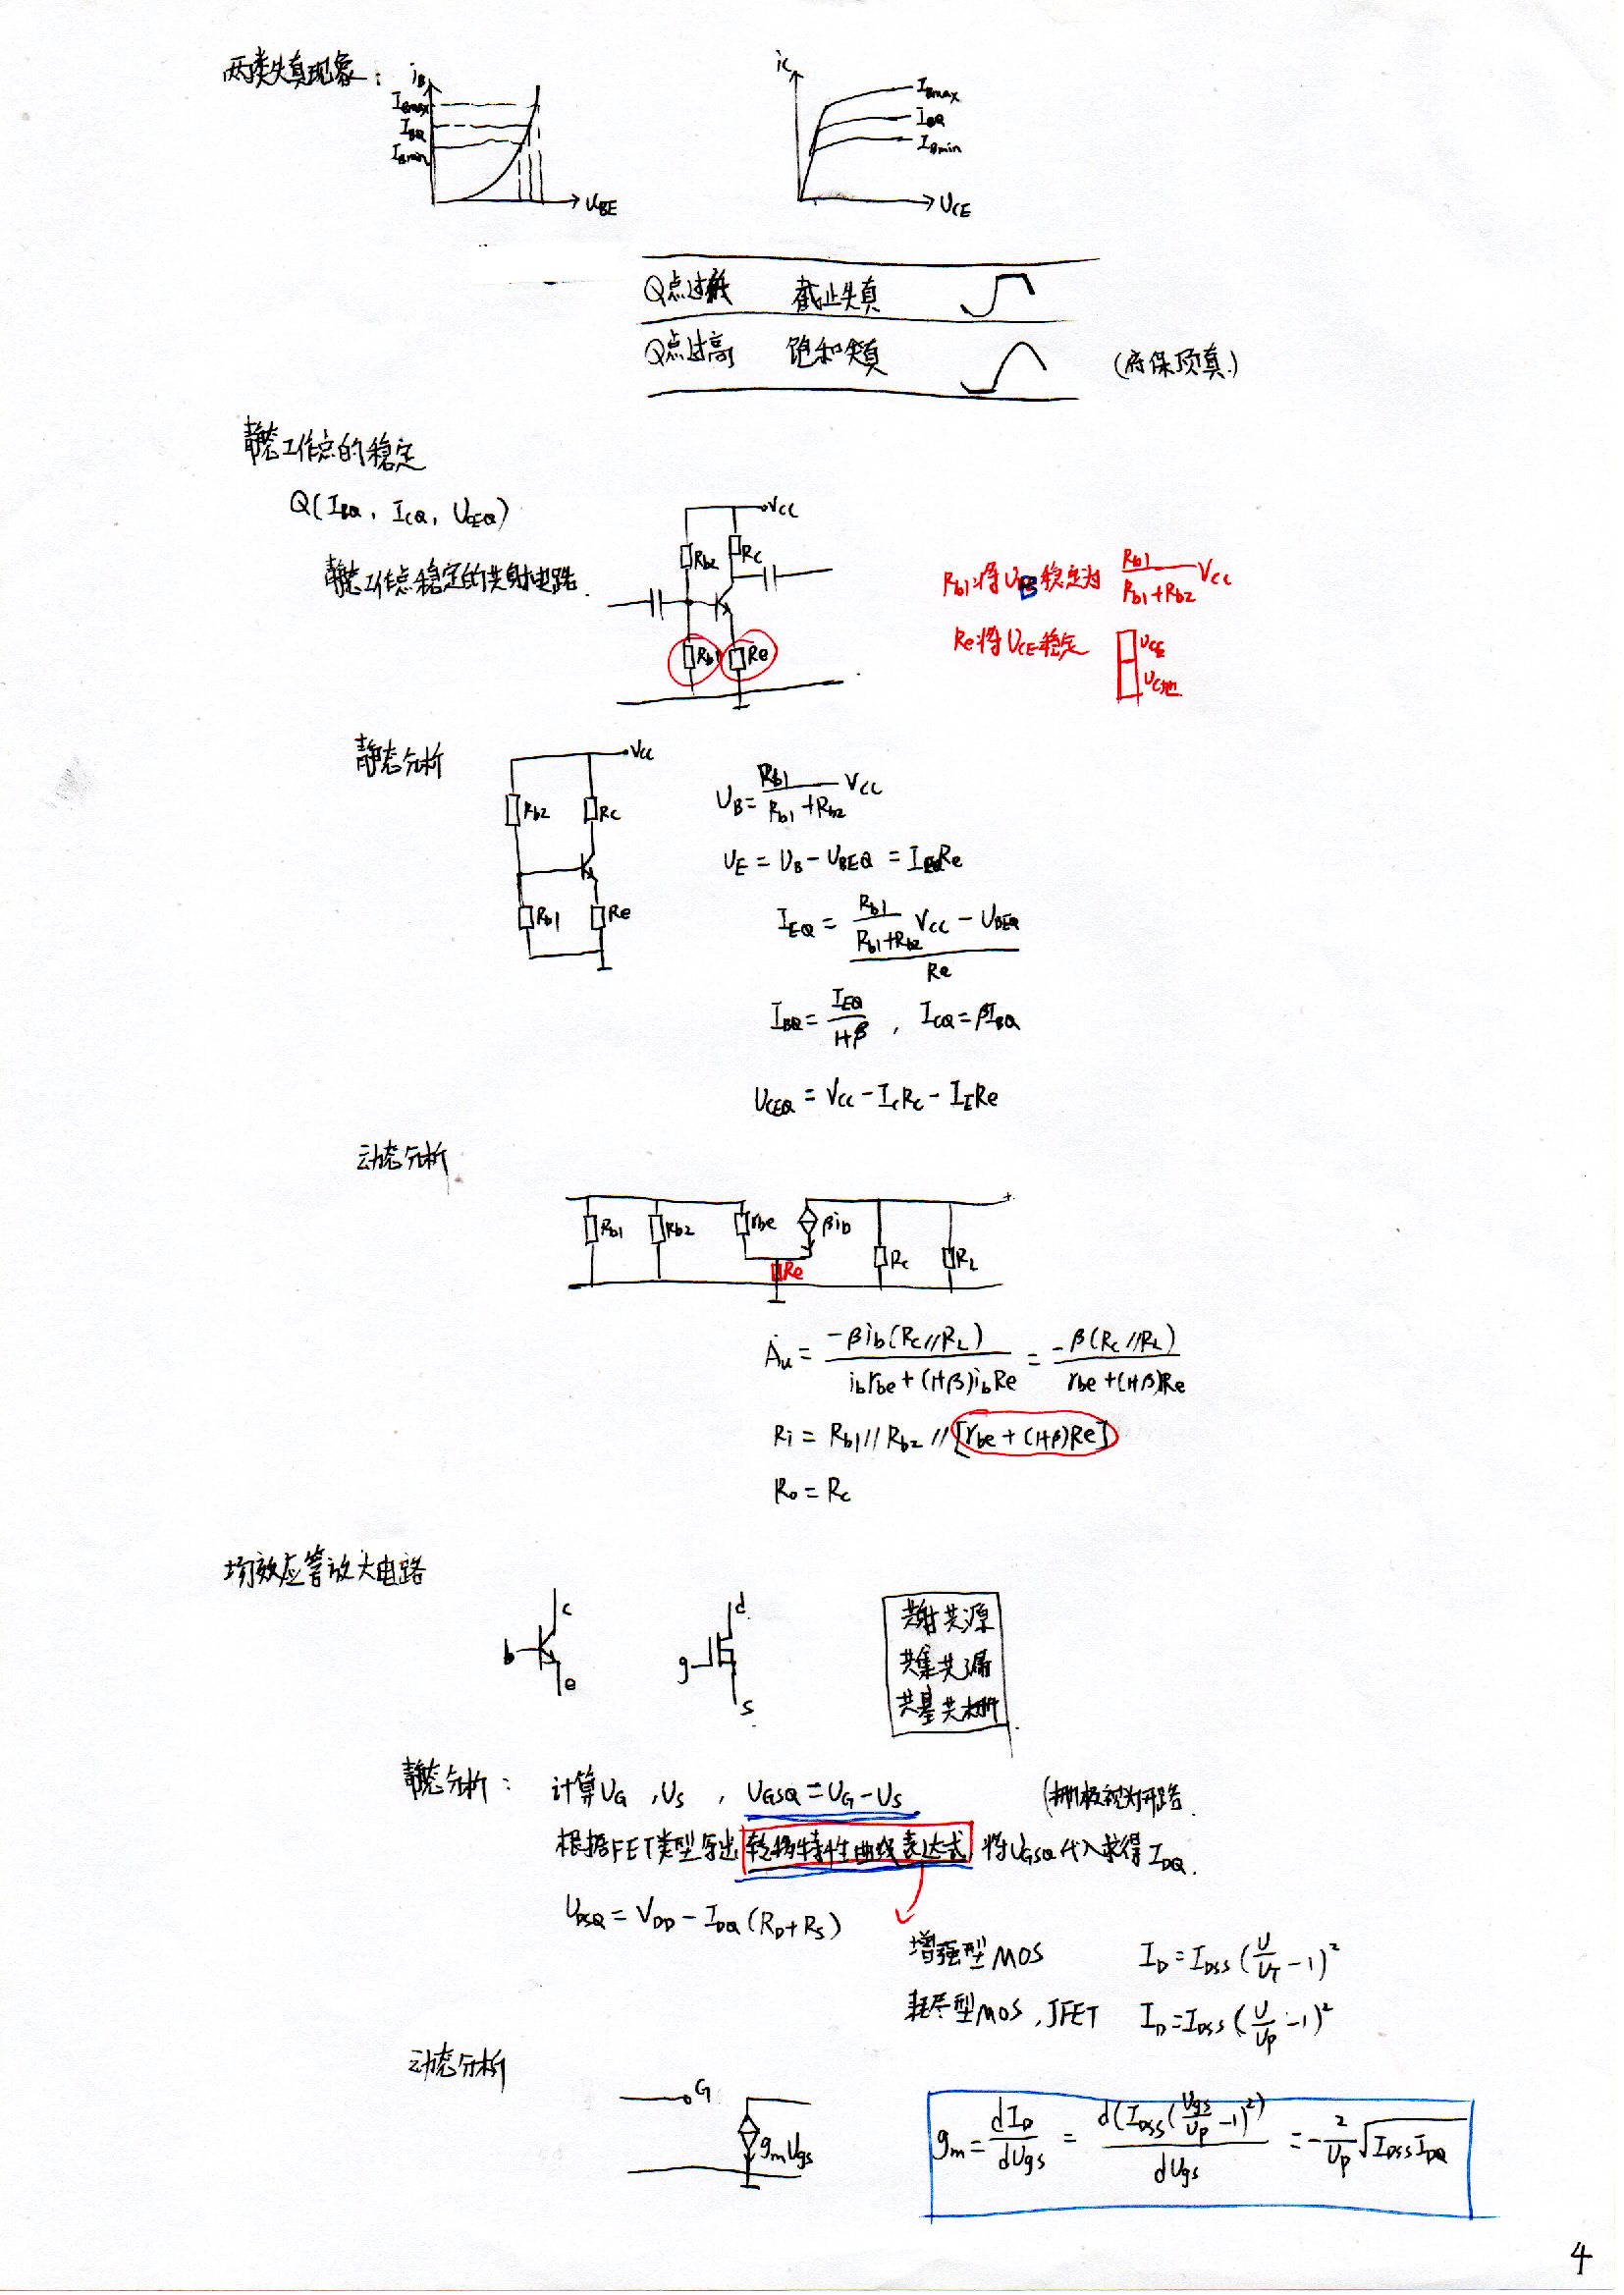 两类失真现象：
i_B
I_Bmax
I_BQ
I_Bmin
U_BE
i_C
I_Bmax
I_BQ
I_Bmin
U_CE
Q点过低 截止失真
Q点过高 饱和失真
(底保顶真.)
静态工作点的稳定
Q(I_BQ, I_CQ, U_CEQ)
静态工作点稳定的共射电路.
Vcc
Rb2 Rc
Rb1 Re
Rb1将U_B稳定为 Rb1/(Rb1+Rb2) Vcc
Re将U_CE稳定
U_CE
U_C地
静态分析
Vcc
Rb2 Rc
Rb1 Re
U_B = Rb1/(Rb1+Rb2) Vcc
U_E = U_B - U_BEQ = I_EQ Re
I_EQ = (Rb1/(Rb1+Rb2) Vcc - U_BEQ)/Re
I_BQ = I_EQ/(1+β) , I_CQ = βI_BQ
U_CEQ = Vcc - I_C Rc - I_E Re
动态分析
+
Rb1 Rb2 rbe βib Rc RL
Re
Ȧu = -βib(Rc//RL)/(ib rbe+(1+β)ib Re) = -β(Rc//RL)/(rbe+(1+β)Re)
Ri = Rb1//Rb2//[rbe+(1+β)Re]
Ro = Rc
场效应管放大电路
c
b
e
d
g
s
共射共源
共集共漏
共基共栅
静态分析： 计算U_G , U_S , U_GSQ = U_G - U_S (栅极视为开路.
根据FET类型写出转移特性曲线表达式, 将U_GSQ代入求得I_DQ.
U_DSQ = V_DD - I_DQ(R_D+R_S)
增强型MOS I_D = I_DSS(U/U_T - 1)²
耗尽型MOS, JFET I_D = I_DSS(U/U_P - 1)²
动态分析
G
gmUgs
gm = dI_D/dUgs = d(I_DSS(Ugs/Up - 1)²)/dUgs = -2/Up √(I_DSS I_DQ)
4